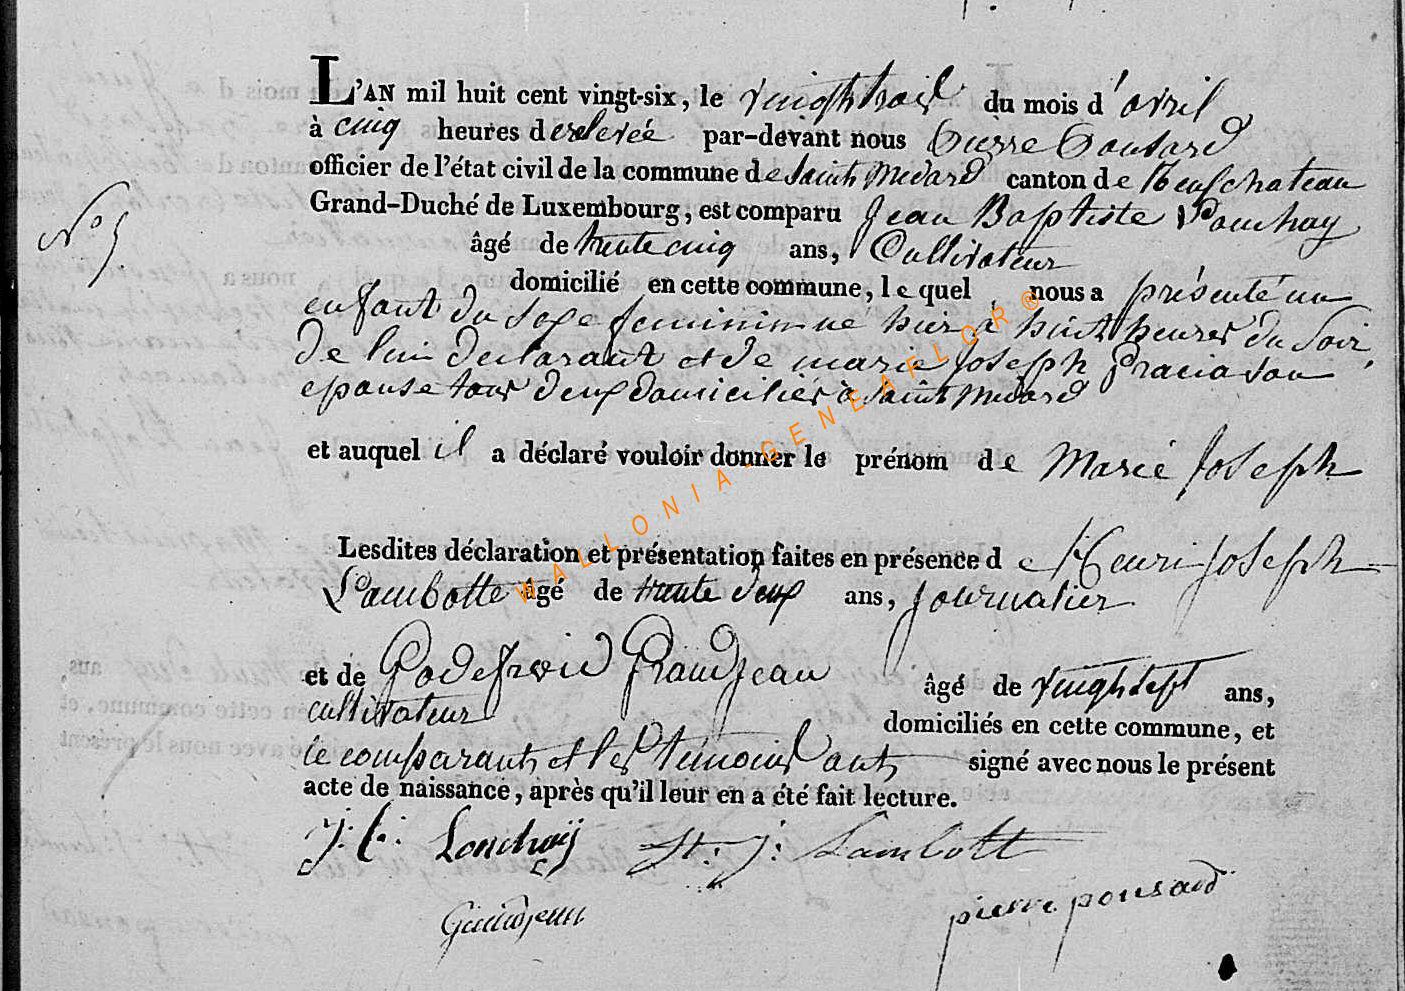 L'AN mil huit cent vingt-six, le vingt huit du mois d'avril
à cinq heures de relevée par-devant nous Pierre Ponsard
officier de l'état civil de la commune de Saint Medard canton de Neufchateau
Grand-Duché de Luxembourg, est comparu Jean Baptiste Lonchay
N° 5
âgé de trente cinq ans, Cultivateur
domicilié en cette commune, lequel nous a présenté un
enfant du sexe feminin né hier à huit heures du Soir
de lui declarant et de marie Joseph son
epouse tous deux domiciliés à Saint Medard
et auquel il a déclaré vouloir donner le prénom de Marie Joseph
Lesdites déclaration et présentation faites en présence de Henri Joseph
Lambotte âgé de trente deux ans, journalier
et de Godefroid Grandjean âgé de vingt sept ans,
cultivateur domiciliés en cette commune, et
le comparant et les témoins ont signé avec nous le présent
acte de naissance, après qu'il leur en a été fait lecture.
J: B: Lonchaÿ H: J: Lambott
Grandjean pierre ponsard
WALLONIA-GENEAFLOR®